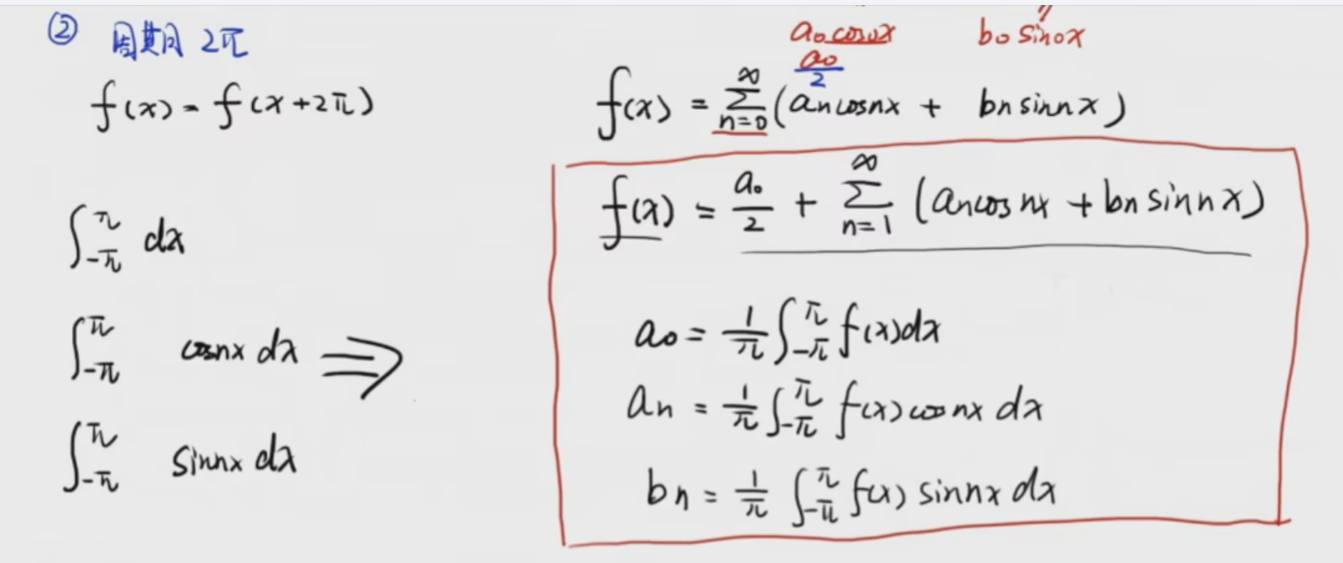 ② 周期 2π
f(x) = f(x+2π)
∫_{-π}^{π} dx
∫_{-π}^{π} cosnx dx ⇒
∫_{-π}^{π} sinnx dx
a₀cos0x b₀sin0x
a₀/2
f(x) = ∑_{n=0}^{∞} (aₙcosnx + bₙsinnx)
f(x) = a₀/2 + ∑_{n=1}^{∞} (aₙcosnx + bₙsinnx)
a₀ = 1/π ∫_{-π}^{π} f(x)dx
aₙ = 1/π ∫_{-π}^{π} f(x)cosnx dx
bₙ = 1/π ∫_{-π}^{π} f(x) sinnx dx